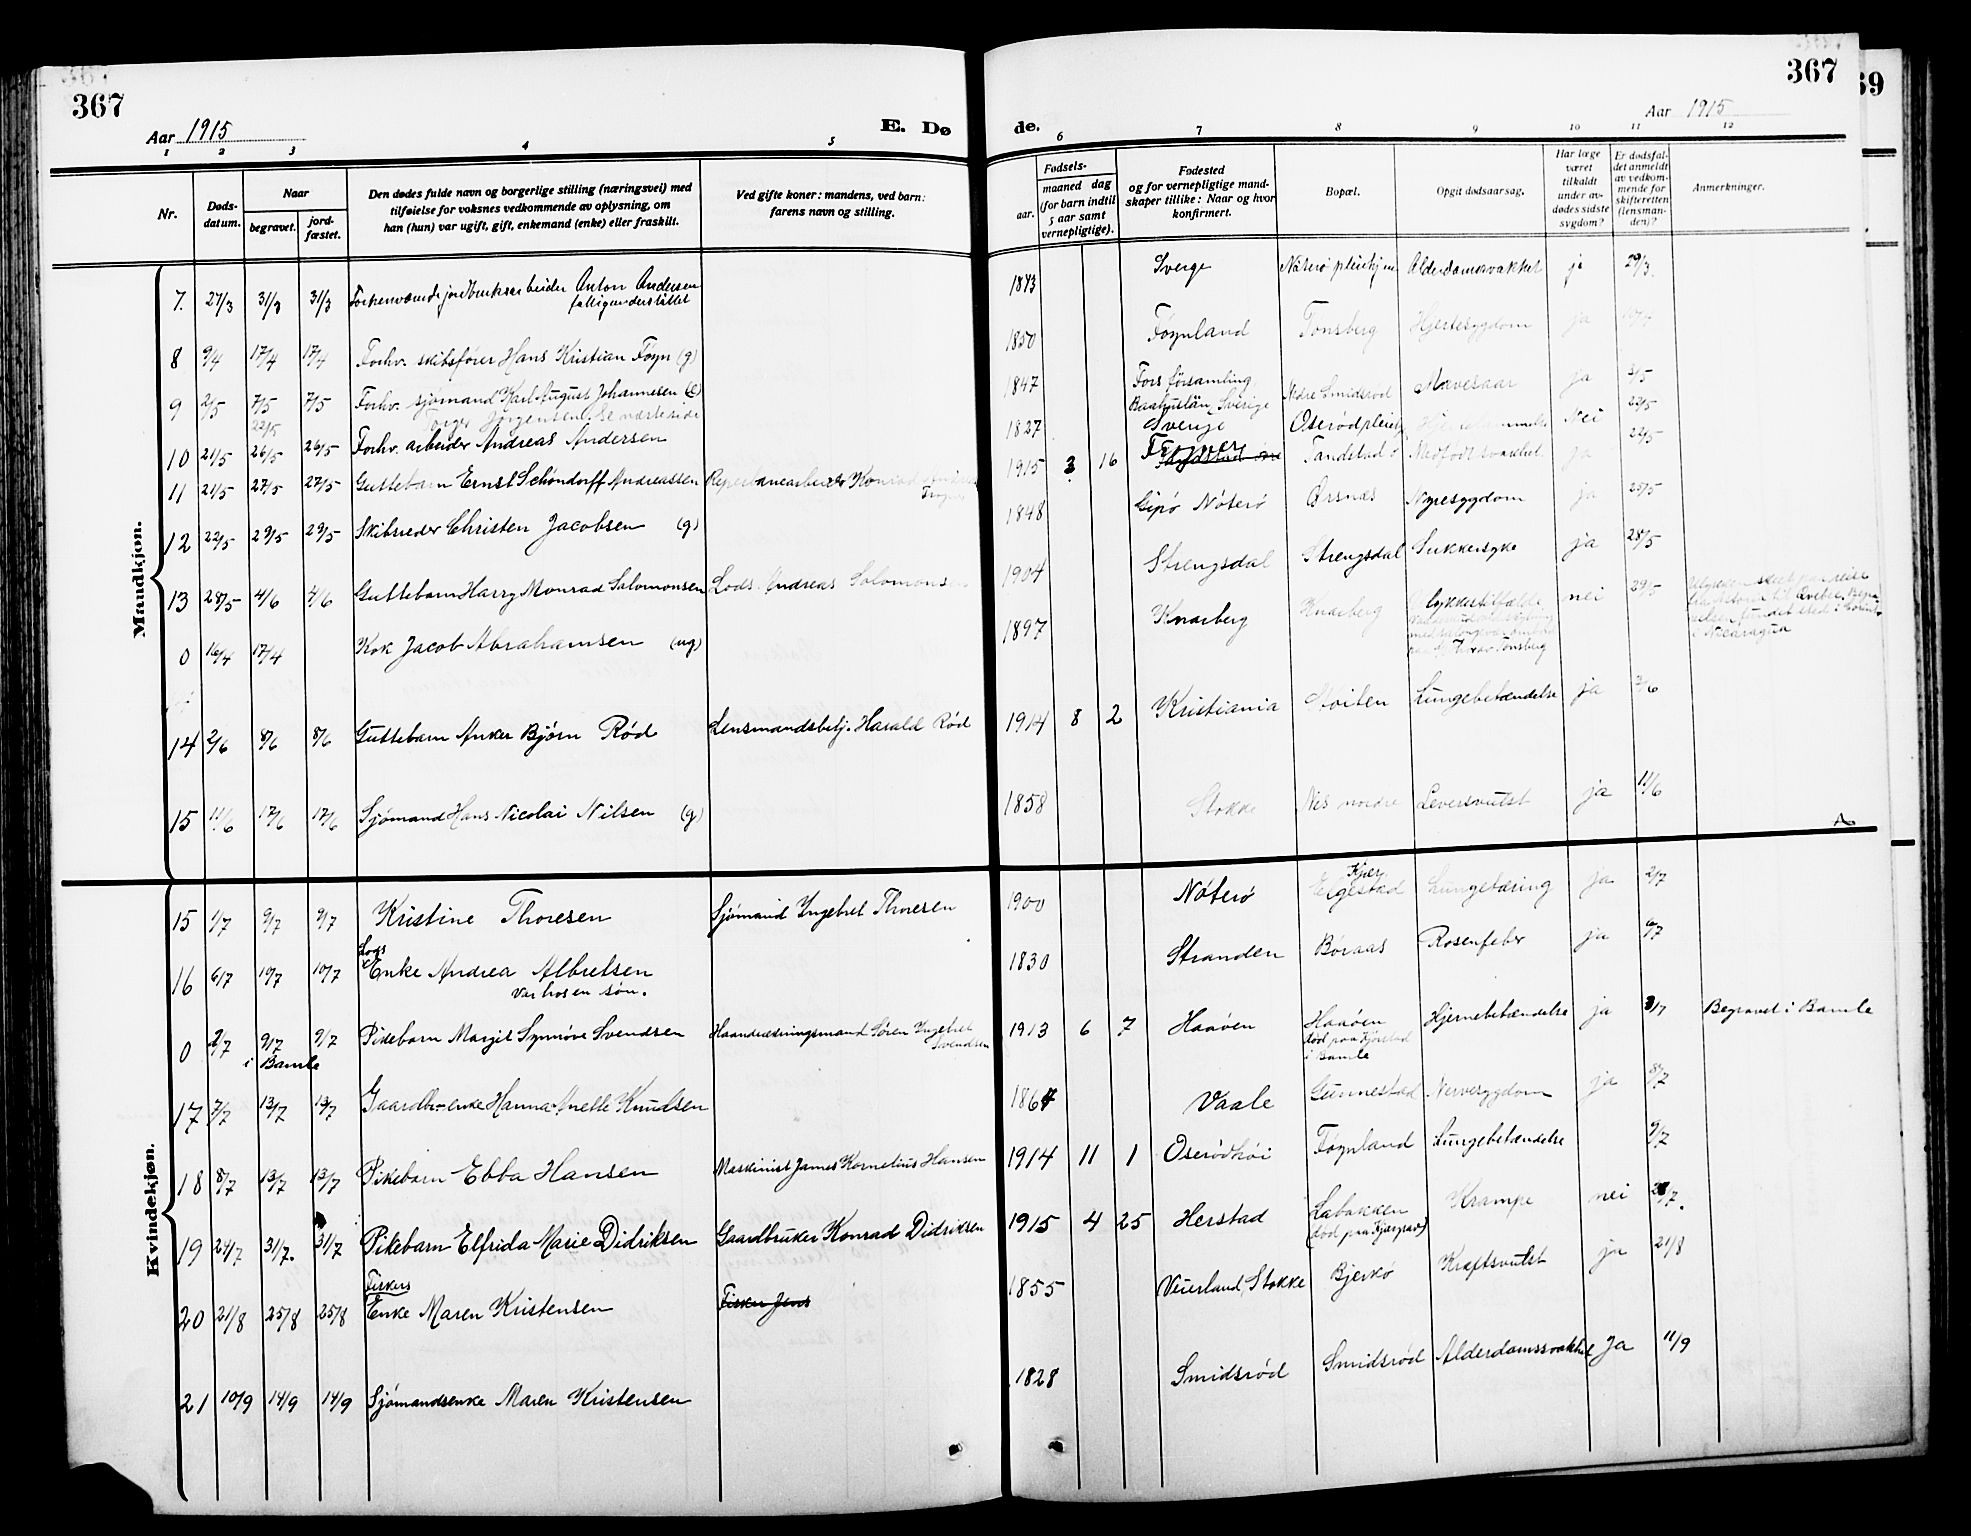 367
367
69
Aar 1915
E. Dø
de.
Aar 1915
1 2 3 4 5 6 7 8 9 10 11 12
Nr.
Døds-
datum.
Naar
begravet.
jord-
fæstet.
Den dødes fulde navn og borgerlige stilling (næringsvei) med
tilføielse for voksnes vedkommende av oplysning, om
han (hun) var ugift, gift, enkemand (enke) eller fraskilt.
Ved gifte koner: mandens, ved barn:
farens navn og stilling.
Fødsels-
aar.
maaned dag
(for barn indtil
5 aar samt
vernepligtige).
Fødested
og for vernepligtige mand-
skaper tillike: Naar og hvor
konfirmert.
Bopæl.
Opgit dødsaarsag.
Har læge
været
tilkaldt
under av-
dødes sidste
sygdom?
Er dødsfal-
det anmeldt
av vedkom-
mende for
skifteretten
(lensman-
den)?
Anmerkninger.
Mandkjøn.
7. 27/3 31/3 31/3 jordbruksarbeider Anton Andersen 1843 Sverge Nøterø pleiehjem Alderdomssvakhet ja 29/3.
fattigunderstøttet
8 9/4 17/4 17/4 Forhv. skibsfører Hans Kristian Føyn (g) 1850 Føynland Tønsberg Hjertesygdom ja
9 2/5 7/5 7/5 Forhv. sjømand Karl August Johannesen (e) 1847 Fors församling Nedre Smidsrød Mavesaar ja 3/5
Baahuslän, Sverige
22/5 Jørgensen. Se næste side
10 21/5 26/5 26/5 Forhv. arbeider Andreas Andersen 1827 Sverige Oserød pleieh Nei 22/5
11 21/5 27/5 27/5 Guttebarn Ernst Schøndorff Andreassen Reperbanearbeider Konrad 1915 3 16 Tandstad ja 22/5
12 22/5 29/5 29/5 Skibsreder Christen Jacobsen (g) 1848 Gipø Nøterø Ørsnes Nyresygdom ja 25/5
13 28/5 4/6 4/6 Guttebarn Harry Monrad Salomonsen Lods Andreas Salomonsen 1904 Strengsdal Strengsdal Sukkersyke ja 28/5
0 16/4 17/4 Kok Jacob Abrahamsen (ug) 1897 Knarberg Knarberg Ulykkestilfælde nei 29/5
i Nicaragua
14 2/6 8/6 8/6 Guttebarn Anker Bjørn Rød Lensmandsbetj. Harald Rød 1914 8 2 Kristiania Stoiten Lungebetændelse ja 2/6
15 11/6 17/6 17/6 Sjømand Hans Nicolai Nilsen (g) 1858 Stokke Nes nordre Leversvulst ja 11/6
Kvindekjøn.
15 1/7 9/7 9/7 Kristine Thoresen Sjømand Yngebret Thoresen 1900 Nøterø Kjær Elgestad Lungetæring ja 2/7
16 6/7 10/7 10/7 Lods Enke Andrea Albretsen 1830 Stranden Børaas Rosenfeber ja 6/7
var hos en søn.
0 2/7 9/7 9/7 Pikebarn Margit Synnøve Svendsen Haandverksmand Søren Yngebret 1913 6 7 Haaøen Haaøen Hjernebetændelse ja 3/7 Begravet i Bamle
Svendsen
i Bamle
død paa Kjørstad
i Bamle
17 7/7 13/7 13/7 Gaardbr. enke Hanna Anette Knudsen 1864 Vaale Gunnestad Nervesygdom ja 8/7
18 8/7 13/7 13/7 Pikebarn Ebba Hansen Maskinist James Kornelius Hansen 1914 11 1 Oserødhøi Føynland Lungebetændelse 9/7
19 24/7 31/7. 31/7 Pikebarn Elfrida Marie Didriksen Gaardbruker Konrad Didriksen 1915 4 25 Herstad Labakken Krampe nei 28/7.
20 21/8 25/8 25/8 Fiskers Enke Maren Kristensen Fisker Jens 1855 Veierland, Stokke Bjerkø Kræftsvulst ja 21/8
21 10/9 14/9 14/9 Sjømandsenke Maren Kristensen 1828 Smidsrød Smidsrød Alderdomssvakhet Ja 11/9